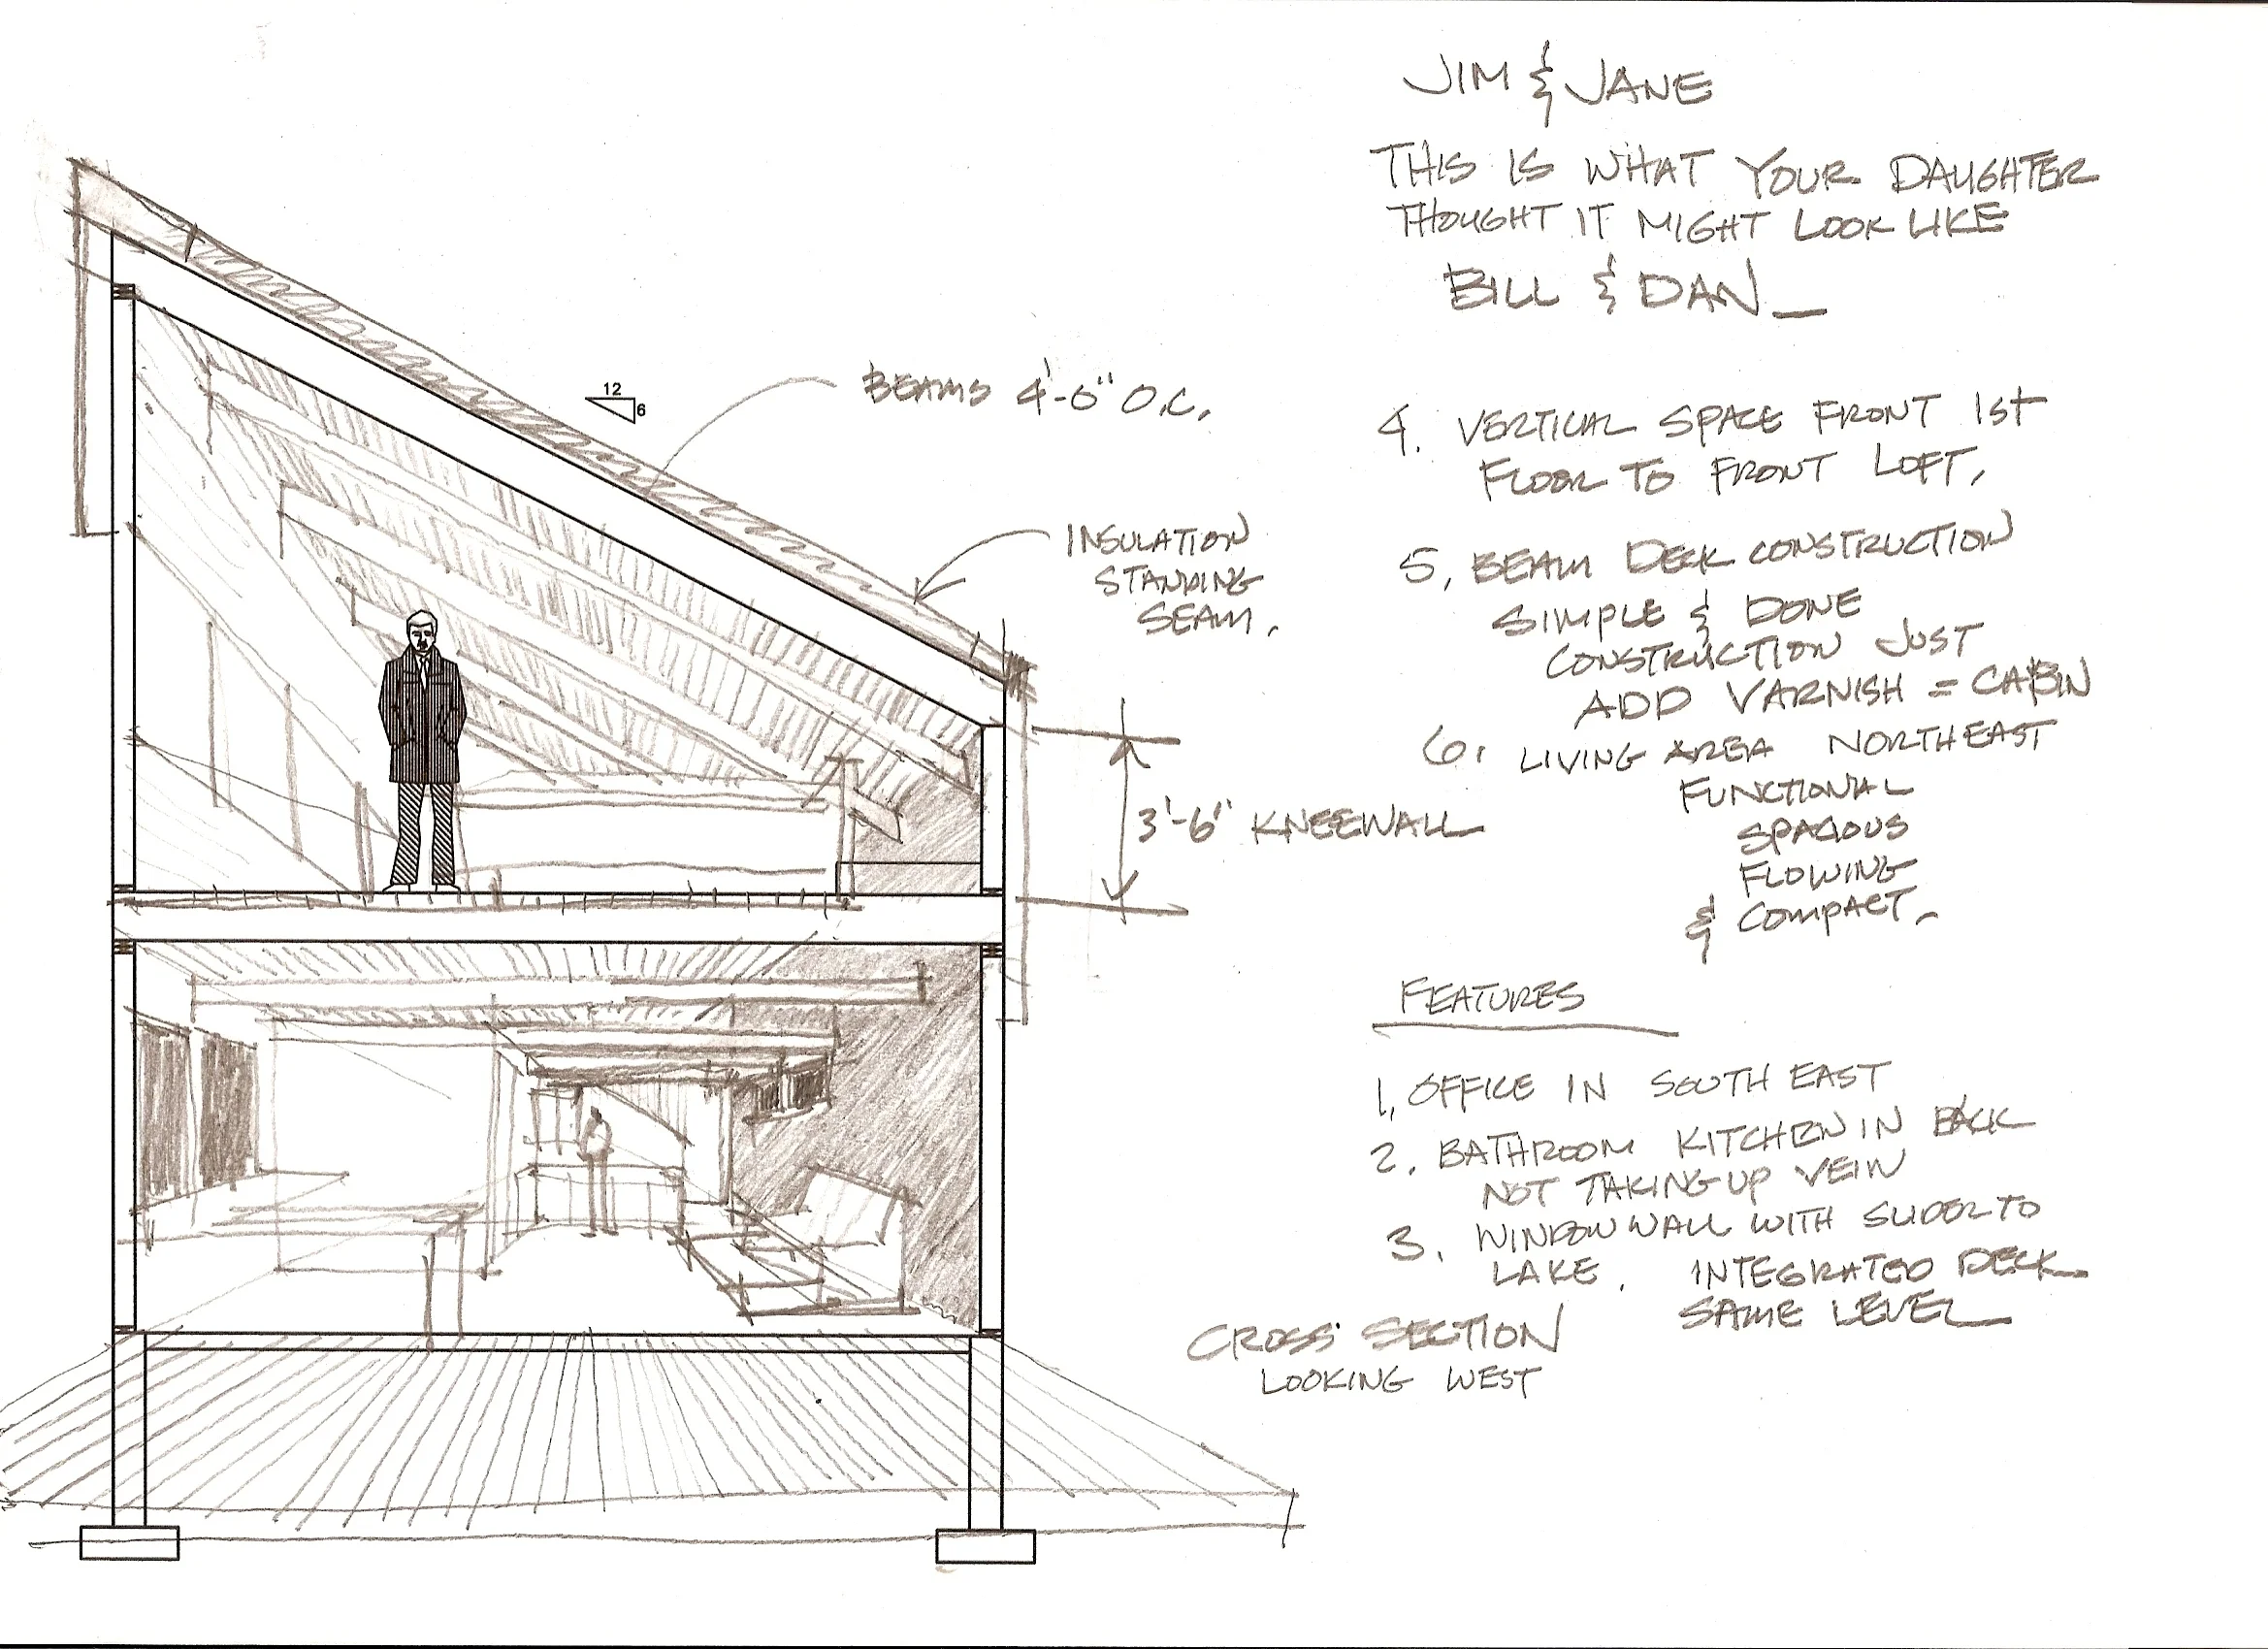 JIM & JANE
THIS IS WHAT YOUR DAUGHTER
THOUGHT IT MIGHT LOOK LIKE
BILL & DAN
12
6
BEAMS 4'-0" O.C.
INSULATION
STANDING
SEAM.
3'-6" KNEEWALL
4. VERTICAL SPACE FRONT 1st
FLOOR TO FRONT LOFT.
5. BEAM DECK CONSTRUCTION
SIMPLE & DONE
CONSTRUCTION JUST
ADD VARNISH = CABIN
6. LIVING AREA NORTHEAST
FUNCTIONAL
SPACIOUS
FLOWING
& COMPACT.
FEATURES
1. OFFICE IN SOUTH EAST
2. BATHROOM KITCHEN IN BACK
NOT TAKING UP VEIN
3. WINDOW WALL WITH SLIDER TO
LAKE. INTEGRATED DECK
SAME LEVEL
CROSS SECTION
LOOKING WEST